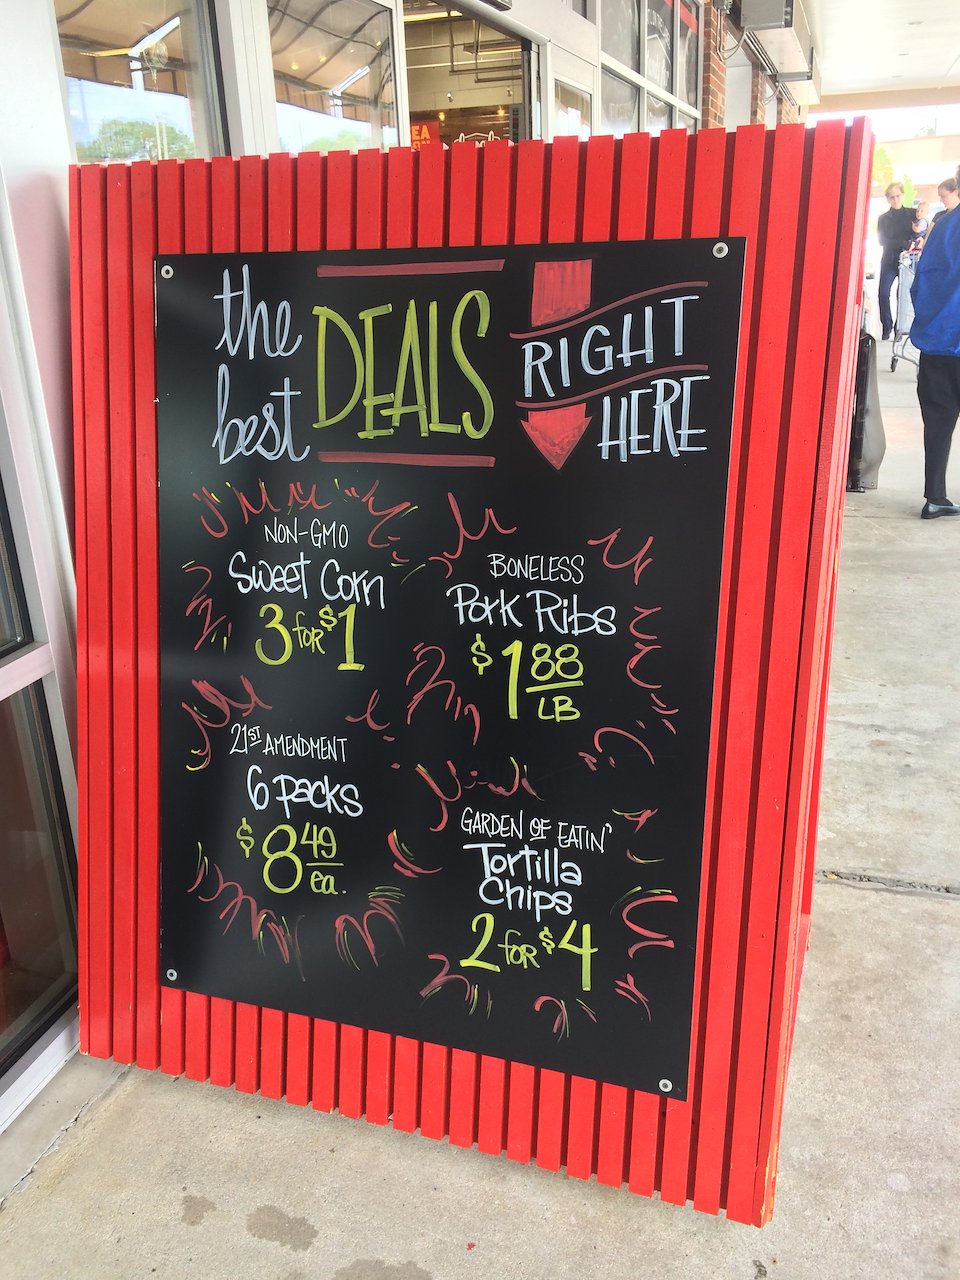 the best DEALS RIGHT HERE
NON-GMO
Sweet Corn
3 for $1
BONELESS
Pork Ribs
$1 88 LB
21ST AMENDMENT
6 packs
$8 49 ea.
GARDEN OF EATIN'
Tortilla
Chips
2 for $4